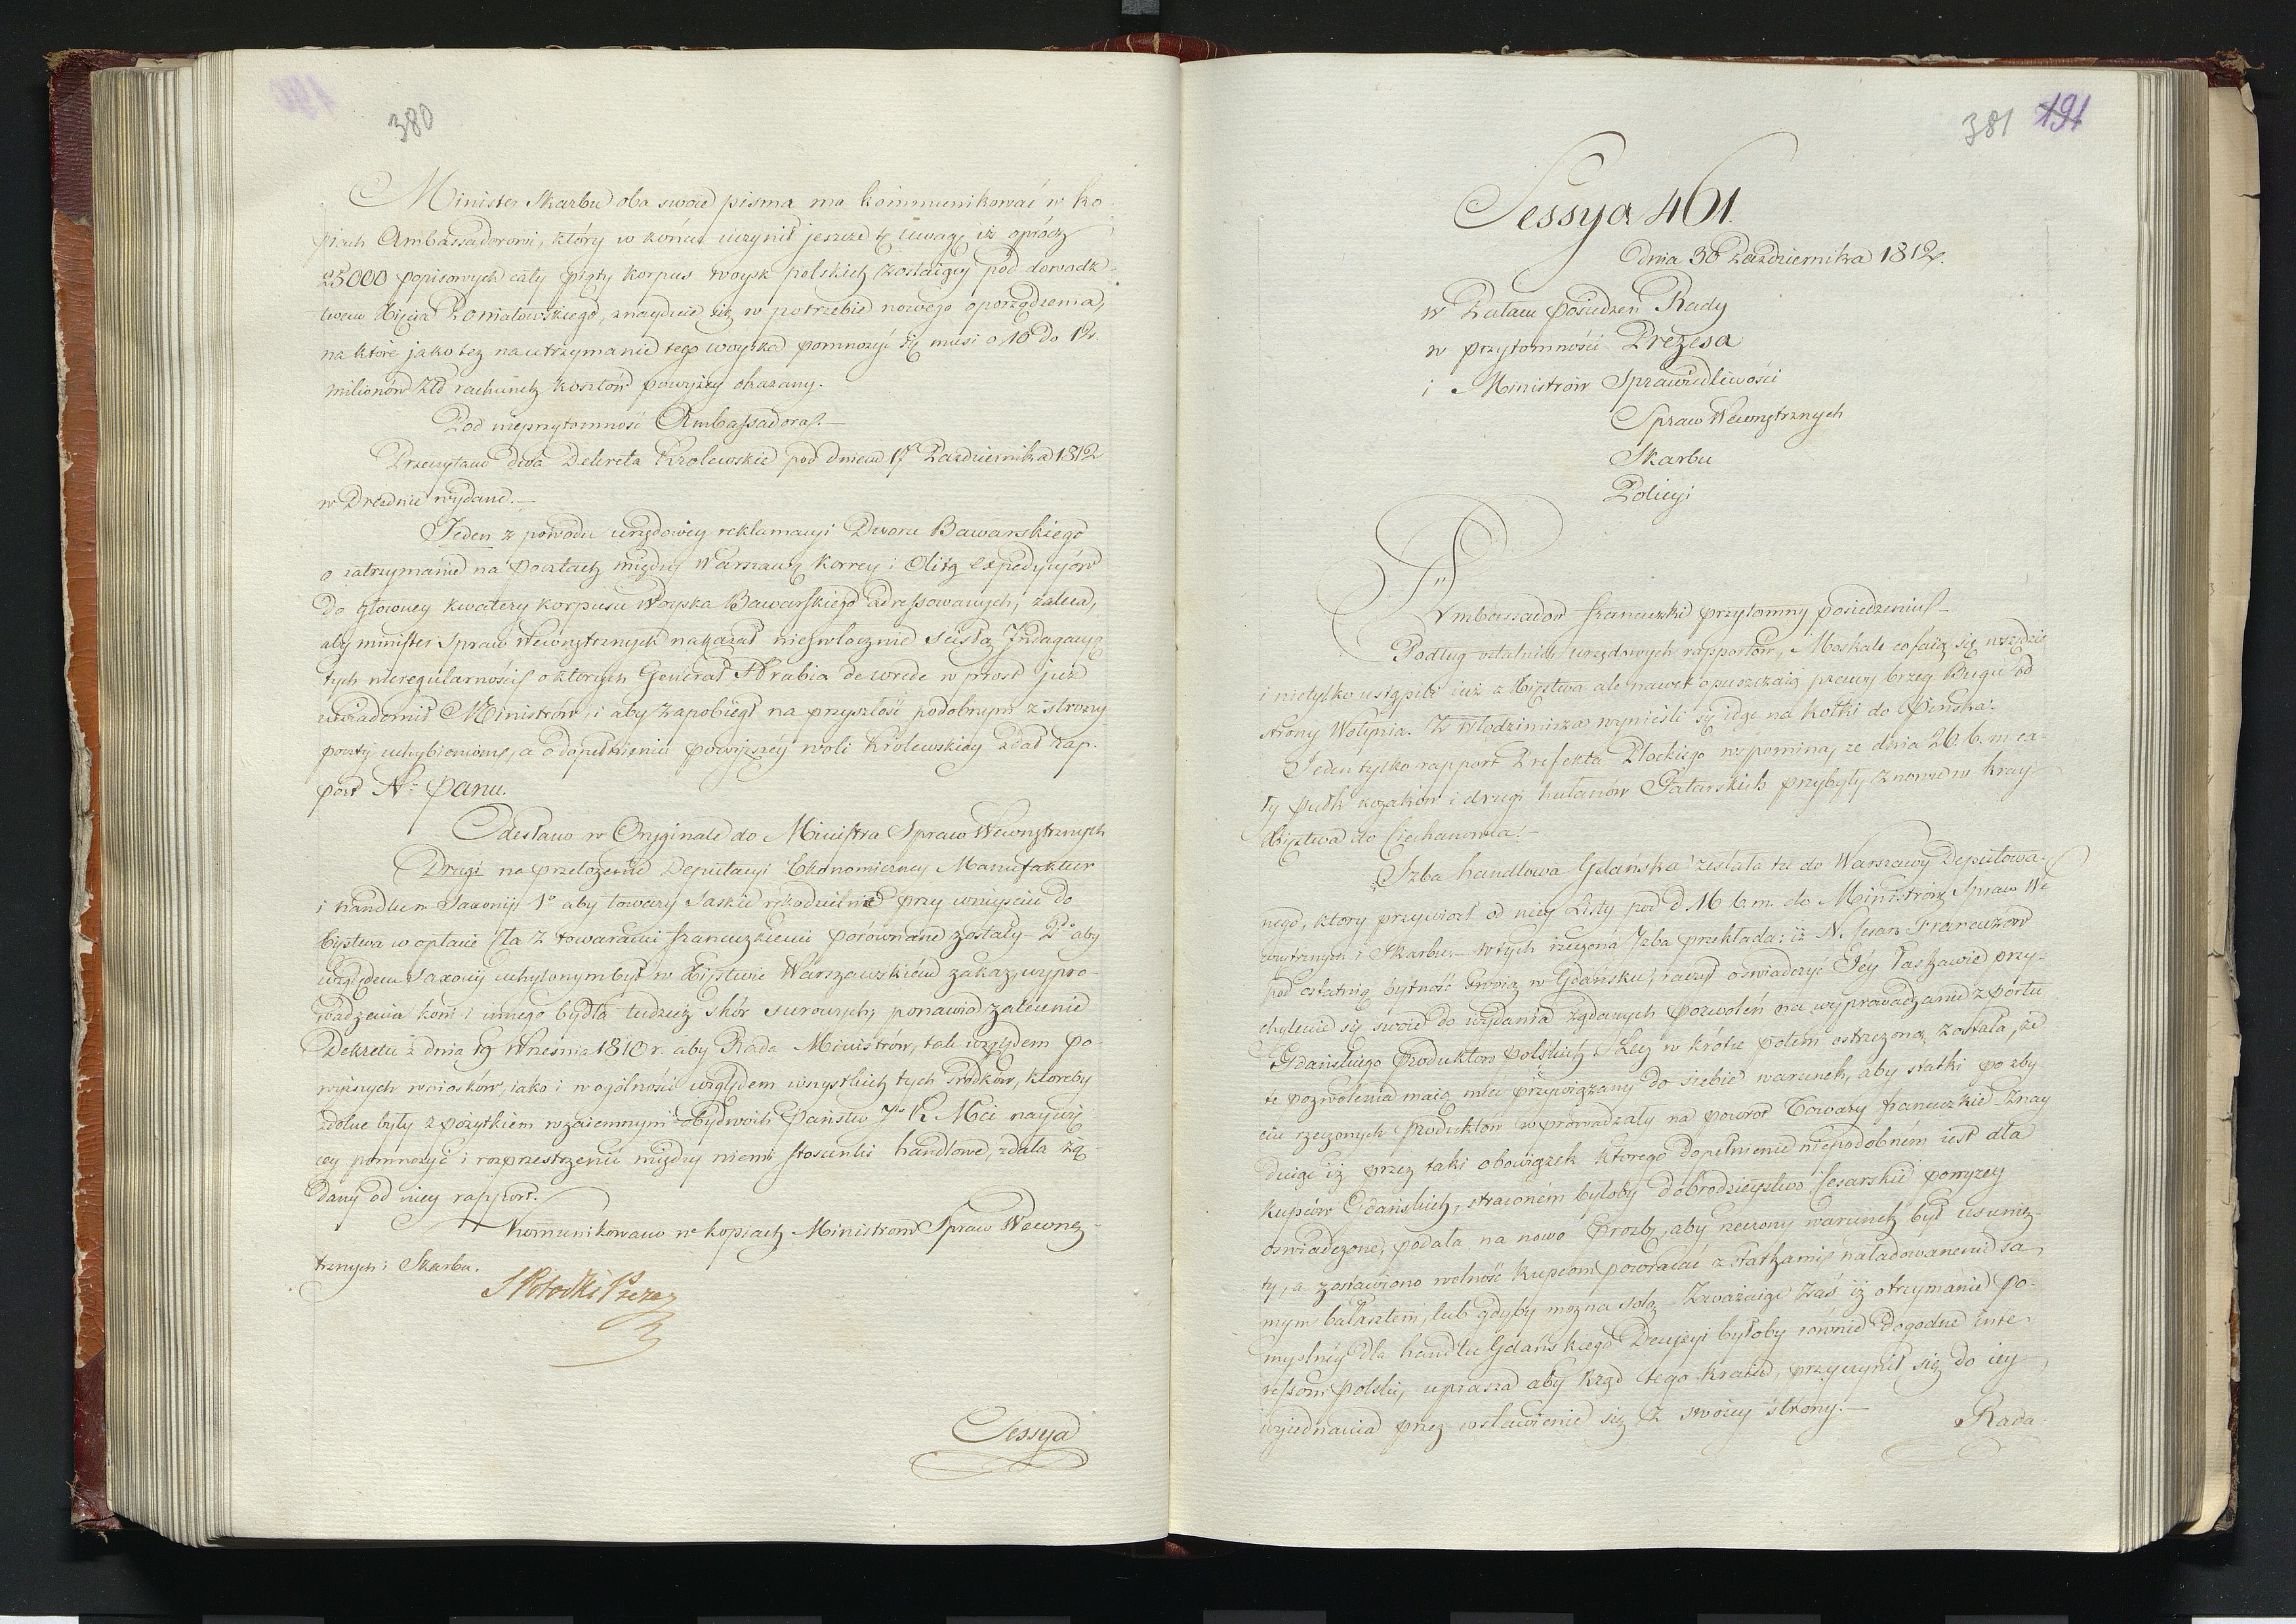 380
Minister Skarbu oba swoie pisma ma kommunikować w ko-
piach Ambassadorowi, który w końcu uczynił jeszcze tę uwagę iż oprócz
25000 popisowych cały piąty korpus woysk polskich zostaiący pod dowodz-
twem Xięcia Poniatowskiego, znayduie się w potrzebie nowego oporządzenia,
na które jako też na utrzymanie tego woyska pomnożyć się musi o 10 do 12
milionów Złł rachunek kosztów powyżey okazany.
Pod nieprzytomność Ambassadora.—
Przeczytano dwa Dekreta Krolewskie pod dniem 17 Października 1812
w Dreznie wydane.—
Jeden z powodu urzędowey reklamacyi Dworu Bawarskiego
o zatrzymanie na pocztach między Warszawą Korrey i Olitą expedycyów
do głowney kwatery korpusu Woyska Bawarskiego adressowanych, zaleca,
aby minister Spraw Wewnętrznych nakazał niezwłocznie ścisłą Indagacyą
tych nieregularności o ktorych Generał Hrabia de wrede w prost już
uwiadomił Ministrów, i aby zapobiegł na przyszłość podobnym z strony
poczty uchybieniom, a o dopełnieniu powyższéy woli Królewskiey zdał rap-
port N: Panu.
Odesłano w Oryginale do Ministra Spraw Wewnętrznych
Drugi na przełożenie Deputacyi Ekonomiczney Manufaktur
i handlu w Saxonij 1º aby towary Saskie rękodzielne przy wniyściu do
Xięstwa w opłacie Cła z towarami francuzkiemi porównane zostały – 2do aby
względem Saxonij uchylonym był w Xięstwie Warszawskiém zakaz wypro-
wadzenia koni i innego bydła tudzież skór surowych, ponawia zalecenie
Dekretu z dnia 19 Wrześnía 1810 r. aby Rada Ministrów, tak względem po-
wyższych wniosków, iako i w ogólności względem wszystkich tych środków, któreby
zdolne były z pożytkiem wzaiemnym obydwoch Państw J. K. Mci naywię-
cey pomnożyć i rozprzestrzenić między niemi stosunki handlowe, zdała żą-
dany od niey rapport.
Komunikowano w kopiach Ministrom Spraw Wewnę-
trznych i Skarbu.
S Potocki Prezes
Sessya
381 191
Sessya 461.
dnia 30 Października 1812.
w Pałacu posiedzeń Rady
w przytomności Prezesa
i Ministrów Sprawiedliwości
Spraw Wewnętrznych
Skarbu
Policyi
Ambassador francuzki przytomny posiedzeniu—
Podług ostatnich urzędowych rapportów, Moskale cofaią się wszędzie
i nietylko ustąpili iuż z Xięstwa ale nawet opuszczaią prawy brzeg Bugu od
strony Wołynia. Z Włodzimirza wynieśli się idąc na Kołki do Pińska.
Jeden tylko rapport Prefekta Płockiego wspomina, że dnia 26. b. m. ca-
ły pułk kozaków i drugi hułanów Tatarskich przybyły znowu w kray
Xięztwa do Ciechanowca.—
Izba handlowa Gdańska zesłała tu do Warszawy Deputowa-
nego, ktory przywiozł od niey Listy pod d. 16 b.m. do Ministrów Spraw We-
wnętrznych i Skarbu.— w tych rzeczona Izba przekłada: iż N. Cesarz Francuzów
pod ostatnią bytność swoią w Gdańsku, raczył oświadczyć Jéy łaskawie przy-
chylenie się swoie do wydania żądanych pozwoleń na wyprowadzanie z portu
Gdańskiego Produktów Polskich. Lecz w krótce potem ostrzeżoną została, że
te pozwolenia maią mieć przywiązany do siebie warunek, aby statki po zby-
ciu rzeczonych produktow wprowadzały na powrot Towary francuzkie. Znay
duiąc iż przez taki obowiązek którego dopełnienie niepodobném iest dla
kupców Gdańskich, straconém byłoby dobrodzieystwo Cesarskie powyżey
oświadczone, podała na nowo Prozbę, aby rzeczony warunek był usunię-
ty, a zostawiono wolność kupcom powracać z statkami naładowanemi sa-
mym balasztem, lub gdyby można solą. Zważaiąc zaś iż otrzymanie po-
myślnéy dla handlu Gdańskiego Decyzyi byłoby równie dogodne inte-
ressom Polski, uprasza aby Rząd tego Kraiu, przyczynił się do iey
wyiednania przez wstawienie się z swoiey strony.—
Rada